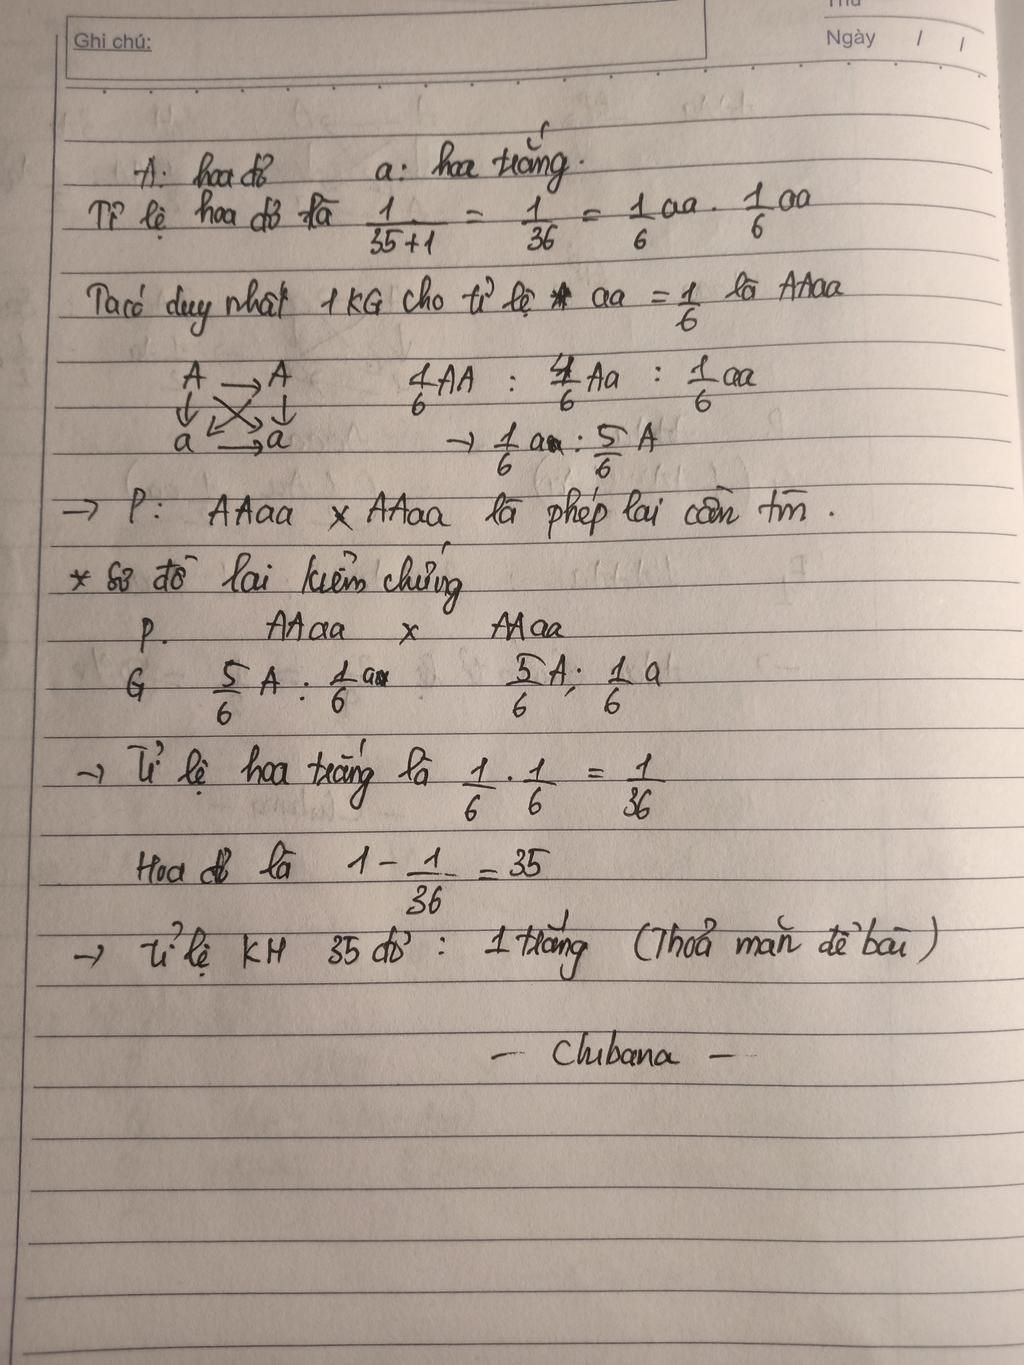 Thứ
Ghi chú:
Ngày / /
A: hoa đỏ a: hoa trắng.
Tỉ lệ hoa đỏ là 1/35+1 = 1/36 = 1/6 aa . 1/6 aa
Ta có duy nhất 1 KG cho tỉ lệ aa = 1/6 là AAaa
A → A 1/6 AA : 4/6 Aa : 1/6 aa
a → a → 1/6 a : 5/6 A
→ P: AAaa x AAaa là phép lai cần tìm.
* Sơ đồ lai kiểm chứng
P. AAaa x AAaa
G 5/6 A : 1/6 a 5/6 A : 1/6 a
→ Tỉ lệ hoa trắng là 1/6 . 1/6 = 1/36
Hoa đỏ là 1 - 1/36 = 35
→ Tỉ lệ KH 35 đỏ : 1 trắng (Thoả mãn đề bài)
- Chibana -